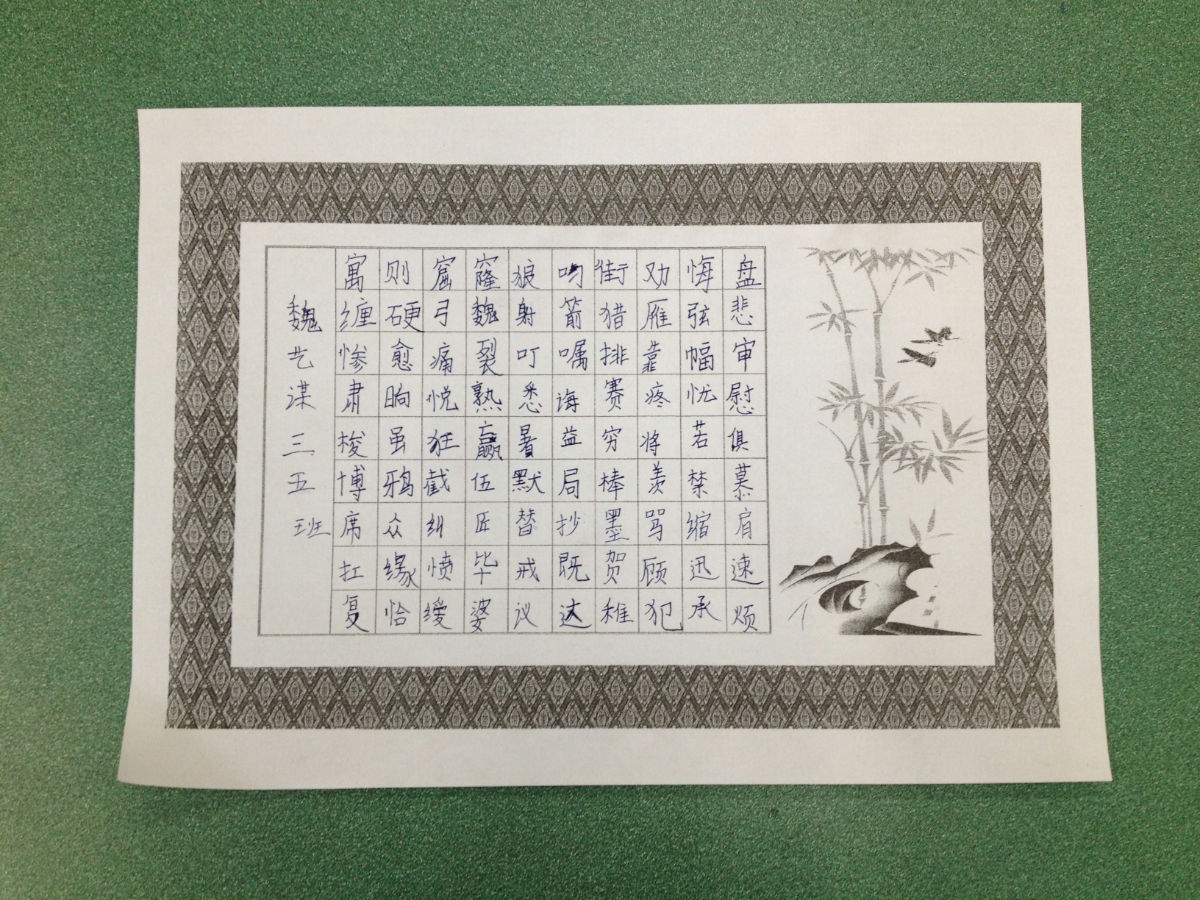 寓则窟窿狼叼街劝悔盘
缠硬弓魏射箭猎雁弦悲
惨愈痛裂叮嘱排靠幅审
肃晌悦熟悉诲赛疼忧慰
梭虽狂赢暑益穷将若俱
博鸦截伍默局棒羡禁慕
席众纠匠替抄墨骂缩肩
扛缘愤毕戒既贺顾迅速
复恰缓婆议达稚犯承烦
魏艺谋三五班